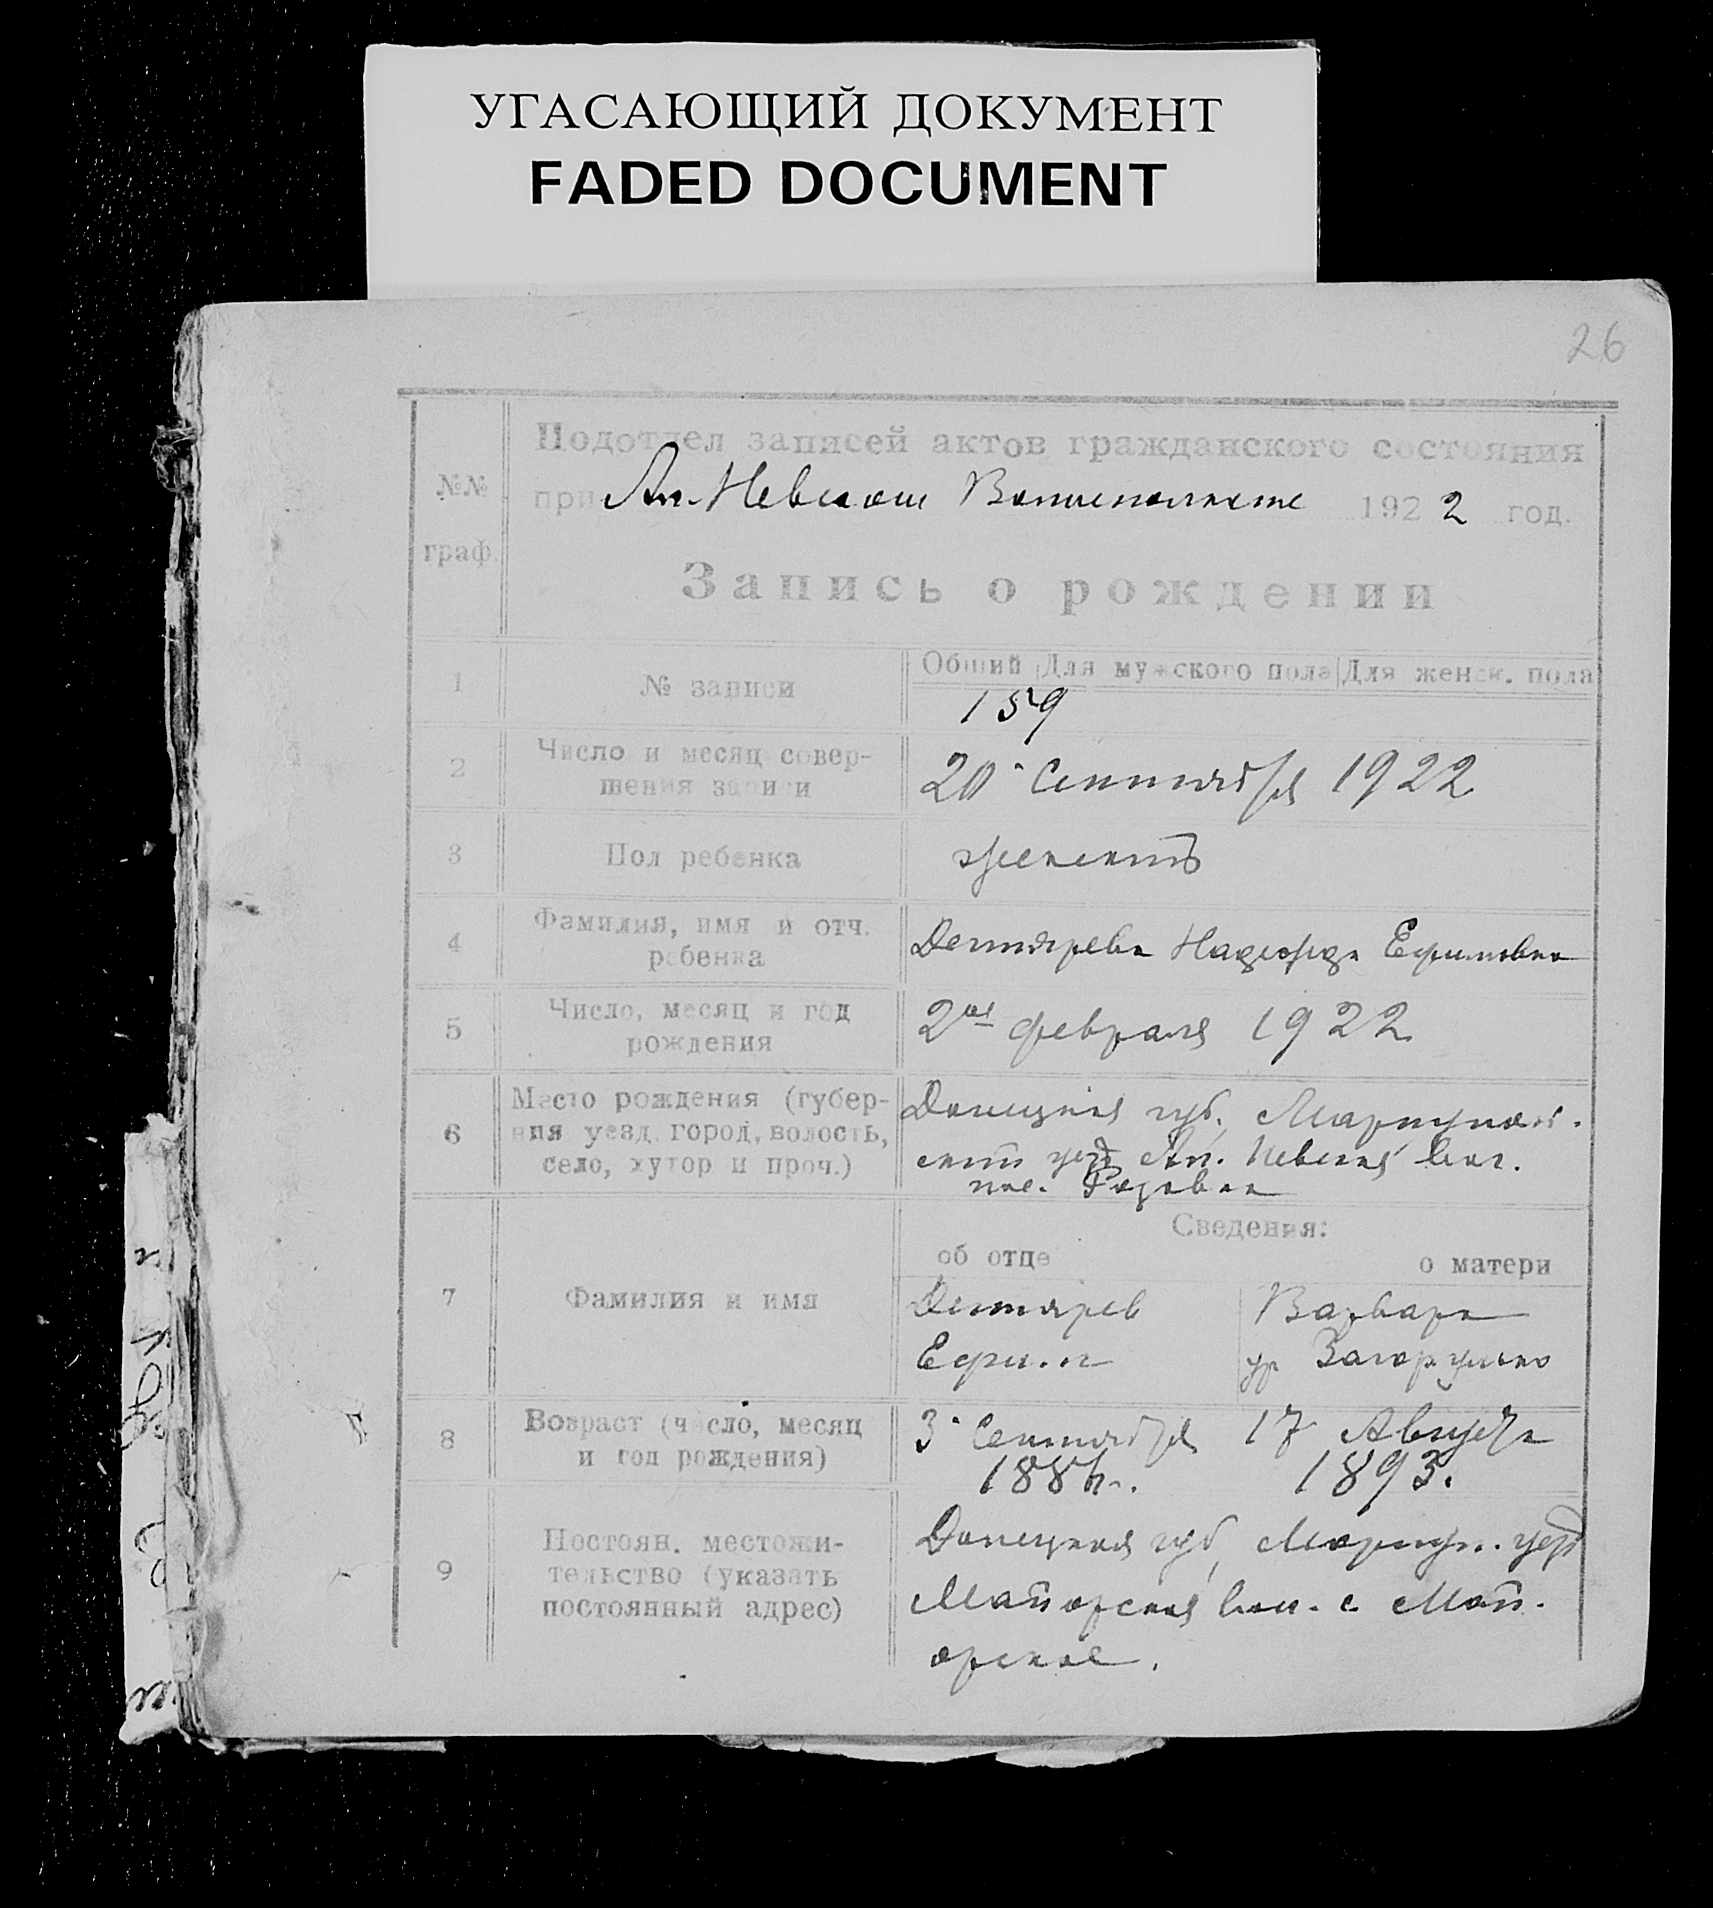 УГАСАЮЩИЙ ДОКУМЕНТ
FADED DOCUMENT
26
№№
граф.
Подотдел записей актов гражданского состояния
при Ал.-Невском 1922 год.
Запись о рождении
1 № записи
Общий Для мужского пола Для женск. пола
159
2 Число и месяц совер-
шения записи
20 Сентября 1922
3 Пол ребенка
женский
4 Фамилия, имя и отч.
ребенка
Дегтярева Надежда Ефимовна
5 Число, месяц и год
рождения
2ая февраля 1922
6 Место рождения (губер-
ния уезд, город, волость,
село, хутор и проч.)
Донецкая губ, Мариуполь-
ский уезд Ал. Невская вол.
пос. Розовка
Сведения:
об отце о матери
7 Фамилия и имя
Дегтярев Варвара
Ефим ур Загорулько
8 Возраст (число, месяц
и год рождения)
3 Сентября 17 Августа
1886 г. 1893.
9 Постоян. местожи-
тельство (указать
постоянный адрес)
Донецкая губ, Мариуп. уезд
Майорская вол. с. Май-
орское.